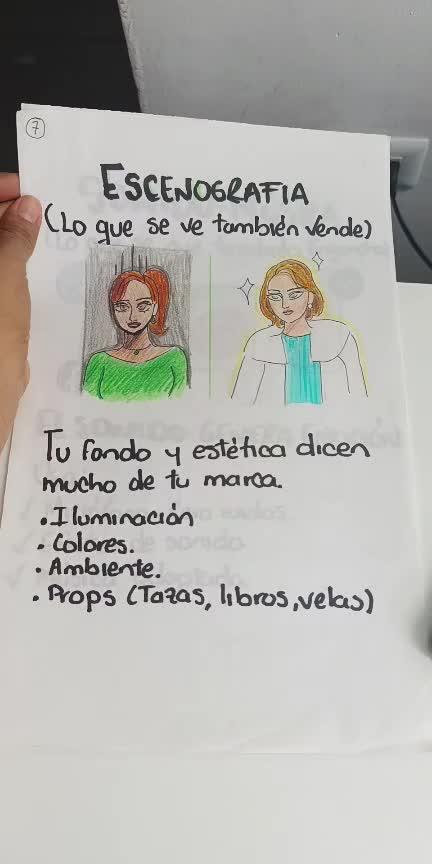 7
ESCENOGRAFIA
(Lo que se ve también vende)
Tu fondo y estética dicen
mucho de tu marca.
• Iluminación
• Colores.
• Ambiente.
• Props (Tazas, libros, velas)